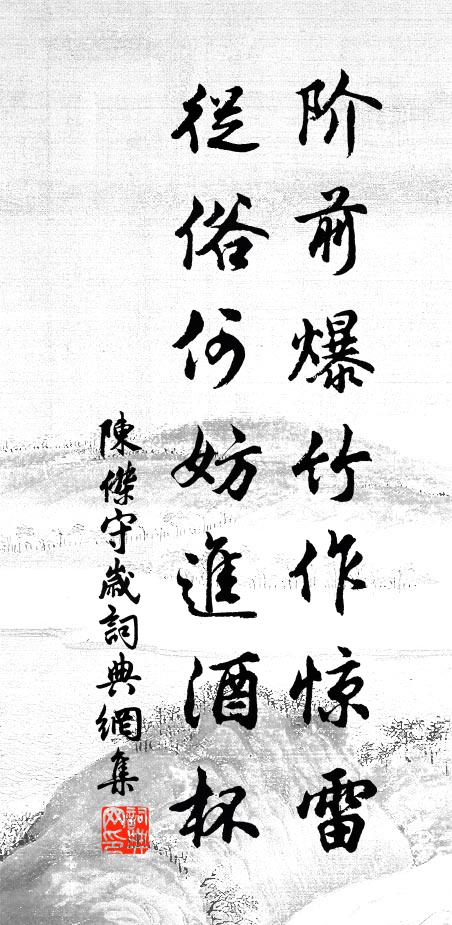 阶前爆竹作惊雷
從俗何妨進酒杯
陳傑守歲詞典網集